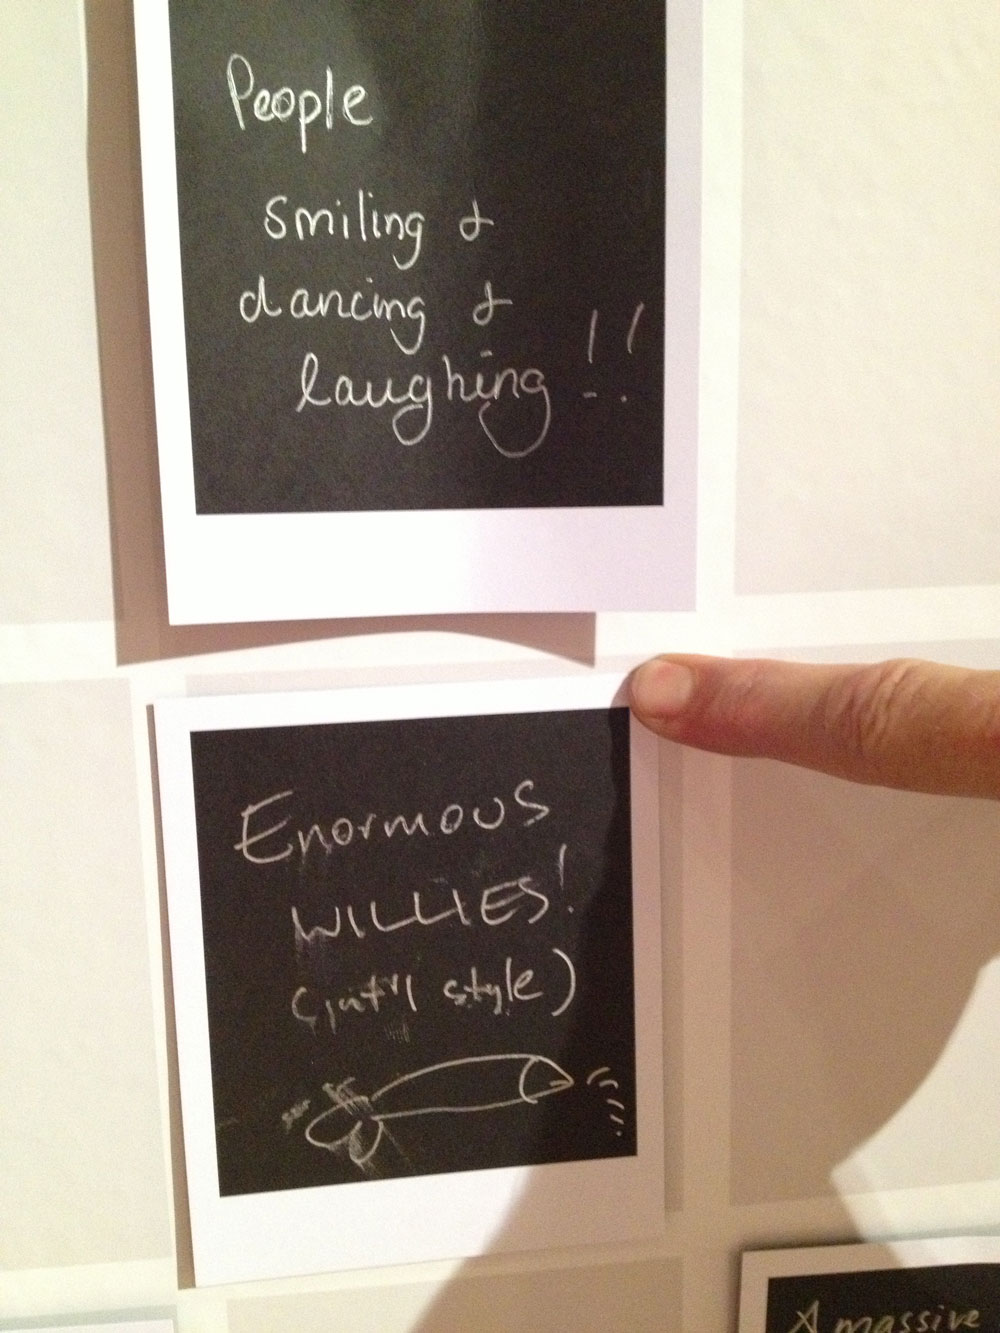 People
smiling &
dancing &
laughing !!
Enormous
WILLIES!
(int'l style)
A massive